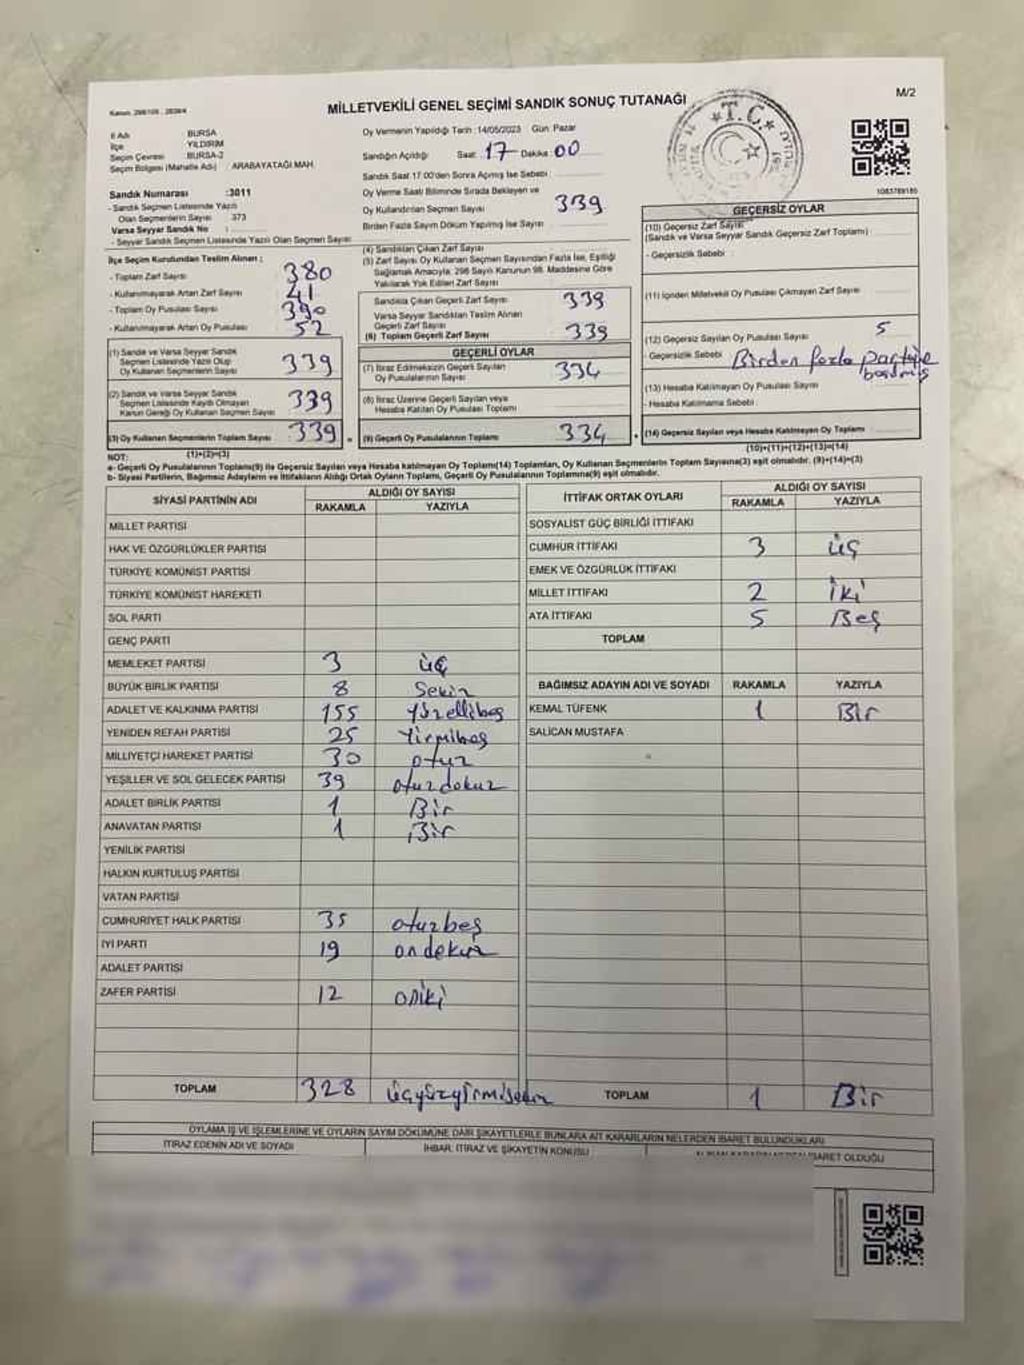 Kanun: 298/105 , 2839/4
MİLLETVEKİLİ GENEL SEÇİMİ SANDIK SONUÇ TUTANAĞI
M/2
T.C.
İl Adı : BURSA
İlçe : YILDIRIM
Seçim Çevresi : BURSA-2
Seçim Bölgesi (Mahalle Adı) : ARABAYATAĞI MAH.
Sandık Numarası :3011
- Sandık Seçmen Listesinde Yazılı
Olan Seçmenlerin Sayısı : 373
Varsa Seyyar Sandık No :
- Seyyar Sandık Seçmen Listesinde Yazılı Olan Seçmen Sayısı
Oy Vermenin Yapıldığı Tarih :14/05/2023 Gün: Pazar
Sandığın Açıldığı Saat: 17 Dakika: 00
Sandık Saat 17:00'den Sonra Açılmış İse Sebebi :
Oy Verme Saati Bitiminde Sırada Bekleyen ve
Oy Kullandırılan Seçmen Sayısı 339
Birden Fazla Sayım Döküm Yapılmış İse Sayısı
1083789185
İlçe Seçim Kurulundan Teslim Alınan ;
- Toplam Zarf Sayısı : 380
- Kullanılmayarak Artan Zarf Sayısı : 41
- Toplam Oy Pusulası Sayısı : 390
- Kullanılmayarak Artan Oy Pusulası : 52
(1) Sandık ve Varsa Seyyar Sandık
Seçmen Listesinde Yazılı Olup
Oy Kullanan Seçmenlerin Sayısı 339
(2) Sandık ve Varsa Seyyar Sandık
Seçmen Listesinde Kaydı Olmayan
Kanun Gereği Oy Kullanan Seçmen Sayısı 339
(3) Oy Kullanan Seçmenlerin Toplam Sayısı 339
(1)+(2)=(3)
(4) Sandıktan Çıkan Zarf Sayısı
(5) Zarf Sayısı Oy Kullanan Seçmen Sayısından Fazla İse, Eşitliği
Sağlamak Amacıyla, 298 Sayılı Kanunun 98. Maddesine Göre
Yakılarak Yok Edilen Zarf Sayısı
Sandıkta Çıkan Geçerli Zarf Sayısı 339
Varsa Seyyar Sandıktan Teslim Alınan
Geçerli Zarf Sayısı
(6) Toplam Geçerli Zarf Sayısı 339
GEÇERLİ OYLAR
(7) İtiraz Edilmeksizin Geçerli Sayılan
Oy Pusulalarının Sayısı 334
(8) İtiraz Üzerine Geçerli Sayılan veya
Hesaba Katılan Oy Pusulası Toplamı
(9) Geçerli Oy Pusulalarının Toplamı 334
GEÇERSİZ OYLAR
(10) Geçersiz Zarf Sayısı
(Sandık ve Varsa Seyyar Sandık Geçersiz Zarf Toplamı)
- Geçersizlik Sebebi :
(11) İçinden Milletvekili Oy Pusulası Çıkmayan Zarf Sayısı
(12) Geçersiz Sayılan Oy Pusulası Sayısı 5
- Geçersizlik Sebebi : Birden fazla partiye basılmış
(13) Hesaba Katılmayan Oy Pusulası Sayısı
- Hesaba Katılmama Sebebi :
(14) Geçersiz Sayılan veya Hesaba Katılmayan Oy Toplamı
(10)+(11)+(12)+(13)=(14)
NOT:
a- Geçerli Oy Pusulalarının Toplamı(9) ile Geçersiz Sayılan veya Hesaba katılmayan Oy Toplamı(14) Toplamları, Oy Kullanan Seçmenlerin Toplam Sayısına(3) eşit olmalıdır. (9)+(14)=(3)
b- Siyasi Partilerin, Bağımsız Adayların ve İttifakların Aldığı Ortak Oyların Toplamı, Geçerli Oy Pusulalarının Toplamına(9) eşit olmalıdır.
SİYASİ PARTİNİN ADI ALDIĞI OY SAYISI
RAKAMLA YAZIYLA
MİLLET PARTİSİ
HAK VE ÖZGÜRLÜKLER PARTİSİ
TÜRKİYE KOMÜNİST PARTİSİ
TÜRKİYE KOMÜNİST HAREKETİ
SOL PARTİ
GENÇ PARTİ
MEMLEKET PARTİSİ 3 üç
BÜYÜK BİRLİK PARTİSİ 8 Sekiz
ADALET VE KALKINMA PARTİSİ 155 yüzellibeş
YENİDEN REFAH PARTİSİ 25 Yirmibeş
MİLLİYETÇİ HAREKET PARTİSİ 30 otuz
YEŞİLLER VE SOL GELECEK PARTİSİ 39 otuzdokuz
ADALET BİRLİK PARTİSİ 1 Bir
ANAVATAN PARTİSİ 1 Bir
YENİLİK PARTİSİ
HALKIN KURTULUŞ PARTİSİ
VATAN PARTİSİ
CUMHURİYET HALK PARTİSİ 35 oturbeş
İYİ PARTİ 19 ondokuz
ADALET PARTİSİ
ZAFER PARTİSİ 12 oniki
TOPLAM 328 üçyüzyirmisekiz
İTTİFAK ORTAK OYLARI ALDIĞI OY SAYISI
RAKAMLA YAZIYLA
SOSYALİST GÜÇ BİRLİĞİ İTTİFAKI
CUMHUR İTTİFAKI 3 üç
EMEK VE ÖZGÜRLÜK İTTİFAKI
MİLLET İTTİFAKI 2 İki
ATA İTTİFAKI 5 Beş
TOPLAM
BAĞIMSIZ ADAYIN ADI VE SOYADI RAKAMLA YAZIYLA
KEMAL TÜFENK 1 Bir
SALİCAN MUSTAFA
TOPLAM 1 Bir
OYLAMA İŞ VE İŞLEMLERİNE VE OYLARIN SAYIM DÖKÜMÜNE DAİR ŞİKAYETLERLE BUNLARA AİT KARARLARIN NELERDEN İBARET BULUNDUKLARI
İTİRAZ EDENİN ADI VE SOYADI
İHBAR, İTİRAZ VE ŞİKAYETİN KONUSU
ALINAN KARARIN NEDEN İBARET OLDUĞU